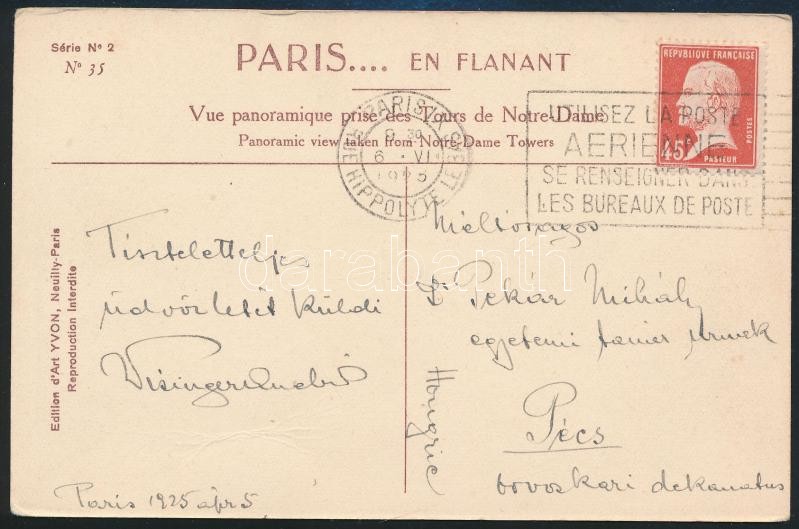 Série Nº 2
Nº 35
PARIS.... EN FLANANT
Vue panoramique prise des Tours de Notre-Dame
Panoramic view taken from Notre-Dame Towers
REPVBLIQVE FRANCAISE
45c
POSTES
PASTEUR
PARIS IX
6 · VI
1925
HIPPOLYTE LEBAS
UTILISEZ LA POSTE
AERIENNE
SE RENSEIGNER DANS
LES BUREAUX DE POSTE
Edition d'Art YVON, Neuilly-Paris
Reproduction Interdite
Tiszteletteljes
üdvözletét küldi
Paris 1925 ápr 5
Méltóságos
Dr Pekár Mihály
egyetemi tanár úrnak
Pécs
orvoskari dekanatus
Hongrie
darabanth